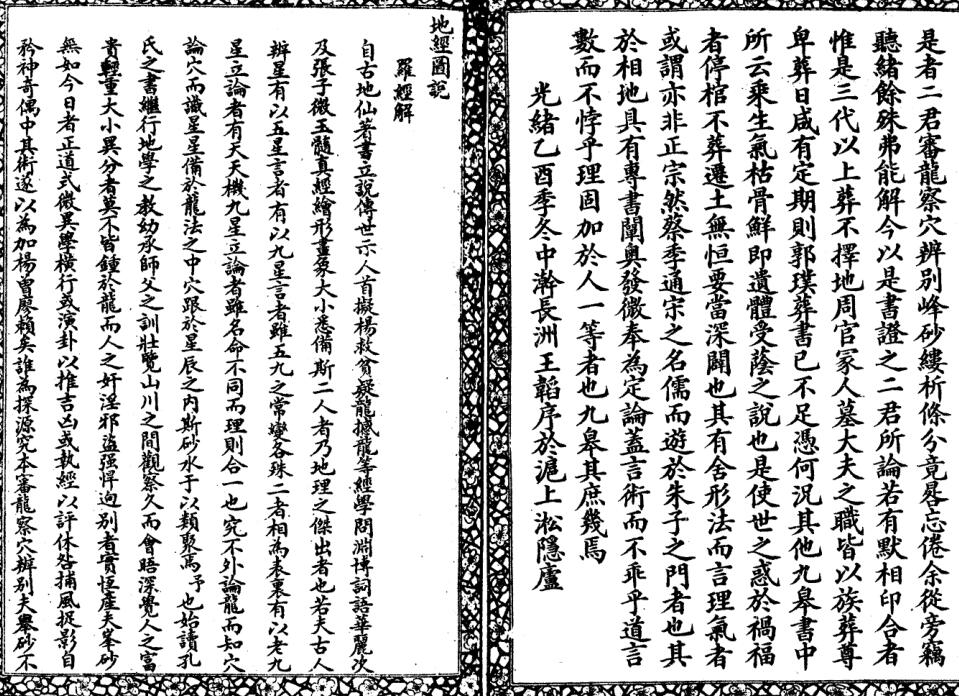 是者二君審龍察穴辨別峰砂縷析條分竟晷忘倦余從旁竊
聽緒餘殊弗能解今以是書證之二君所論若有默相印合者
惟是三代以上葬不擇地周官冢人墓大夫之職皆以族葬尊
卑葬日咸有定期則郭璞葬書已不足憑何況其他九皋書中
所云乘生氣枯骨鮮即遺體受蔭之說也是使世之惑於禍福
者停棺不葬遷土無恒要當深闢也其有舍形法而言理氣者
或謂亦非正宗然蔡季通宗之名儒而遊於朱子之門者也其
於相地具有專書闡奧發微奉為定論蓋言術而不乖乎道言
數而不悖乎理固加於人一等者也九皋其庶幾焉
光緒乙酉季冬中澣長洲王韜序於滬上淞隱廬
地經圖說
羅經解
自古地仙著書立說傳世示人首擬楊救貧疑龍撼龍等經學問淵博詞語華麗次
及張子微玉髓真經繪形畫象大小悉備斯二人者乃地理之傑出者也若夫古人
辨星有以五星言者有以九星言者雖五九之常變各殊二者相為表裏有以老九
星立論者有天天機九星立論者雖名命不同而理則合一也究不外論龍而知穴
論穴而識星星備於龍法之中穴跟於星辰之內斯砂水于以類聚焉予也始讀孔
氏之書繼行地學之教幼承師父之訓壯覽山川之間觀察久而會晤深覺人之富
貴輕重大小異分者莫不皆鍾於龍而人之奸淫邪盜强悍逈別者實恆產夫峯砂
無如今日者正道式微異學橫行或演卦以推吉凶或執經以評休咎捕風捉影自
矜神奇偶中其術遂以為加楊曾廖賴矣誰為探源究本審龍察穴辨别夫羣砂不